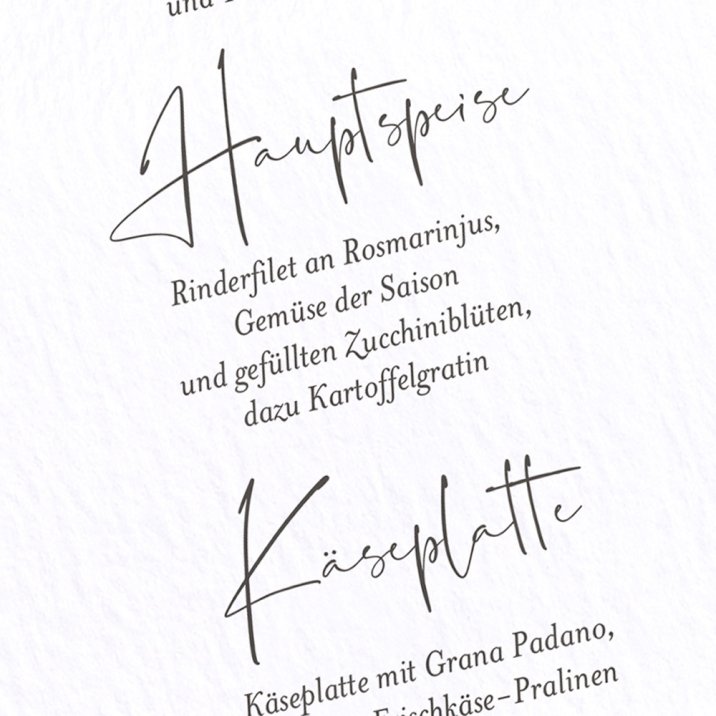 und
Hauptspeise
Rinderfilet an Rosmarinjus,
Gemüse der Saison
und gefüllten Zucchiniblüten,
dazu Kartoffelgratin
Käseplatte
Käseplatte mit Grana Padano,
Frischkäse-Pralinen